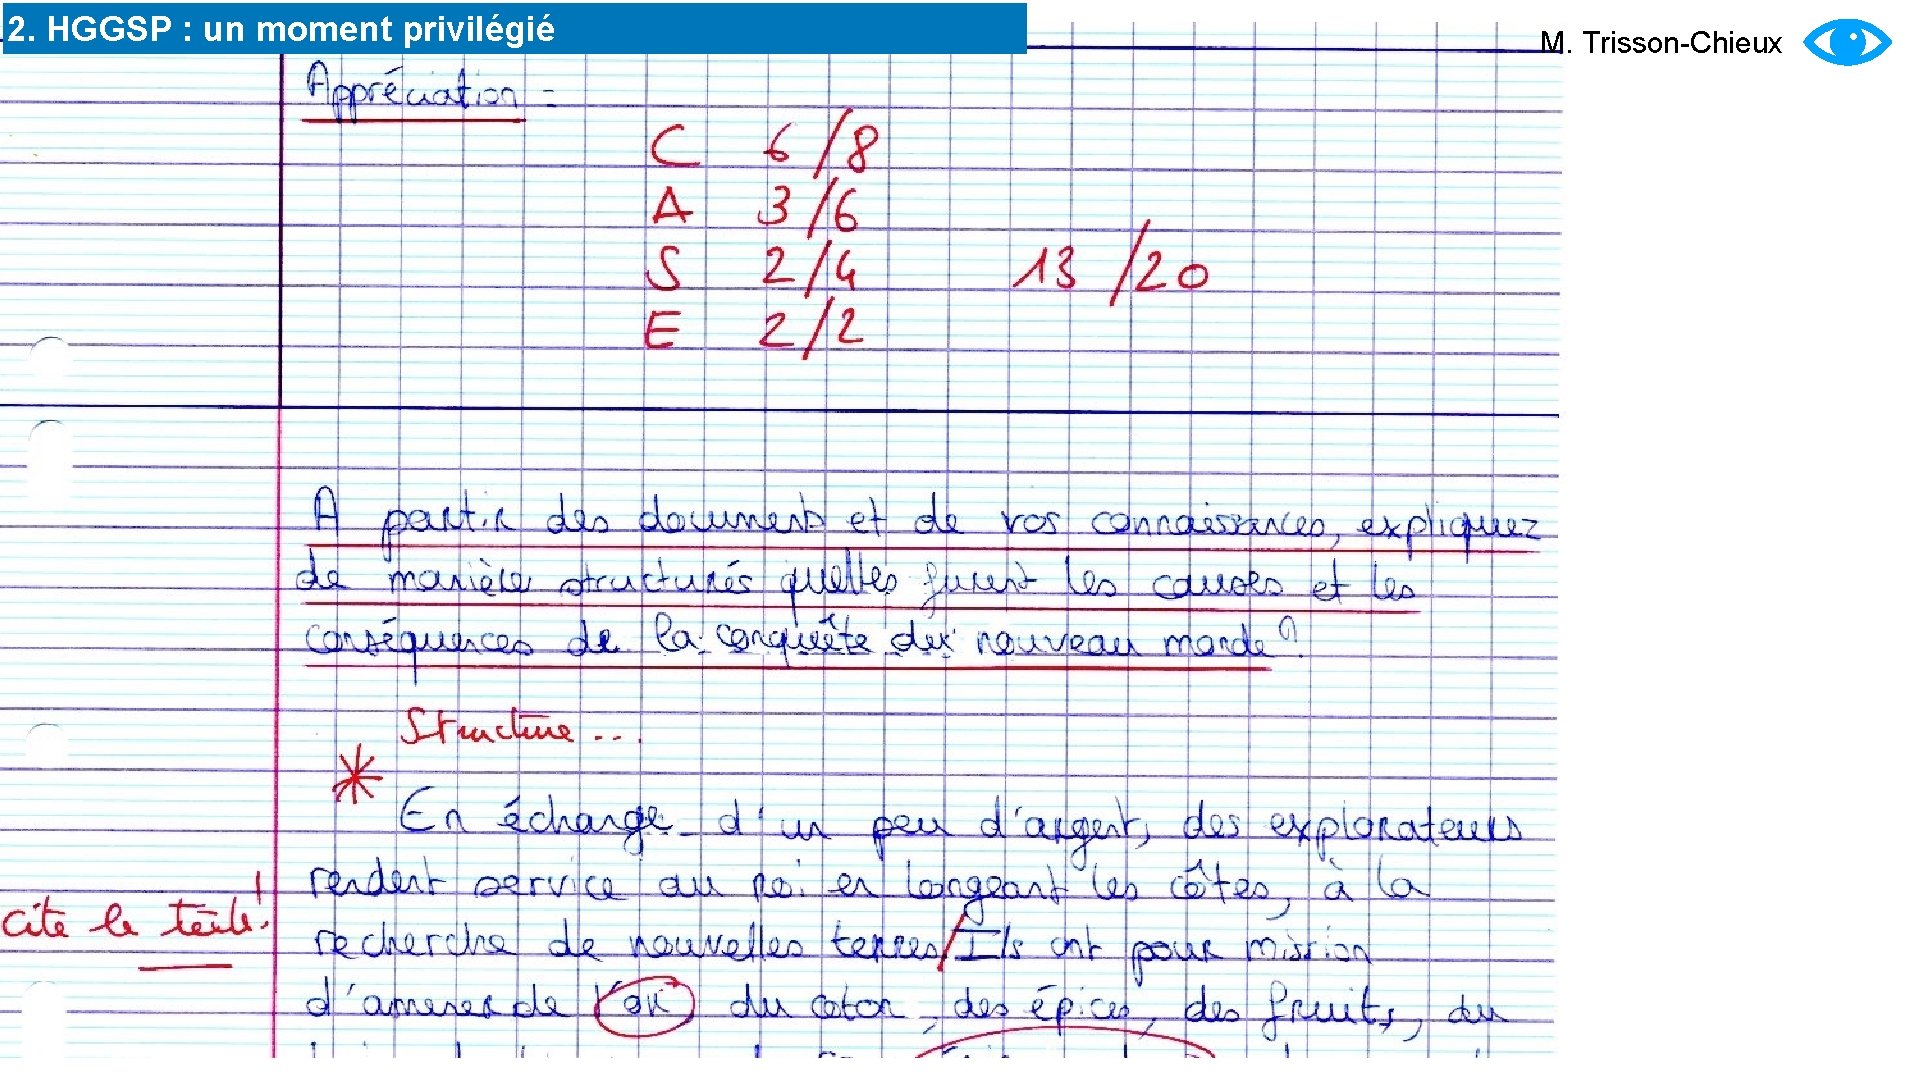 2. HGGSP : un moment privilégié
M. Trisson-Chieux
Appréciation :
C 6/8
A 3/6
S 2/4
E 2/2
13/20
A partir des document et de vos connaissances, expliquez
de manière structurés quelles furent les causes et les
conséquences de la conquête du nouveau monde ?
Structure...
*
En échange d'un peu d'argent, des explorateurs
rendent service au roi en longeant les côtes, à la
cite le texte !
recherche de nouvelles terres/Ils ont pour mission
d'amener de l'or, du coton, des épices, des fruits, du